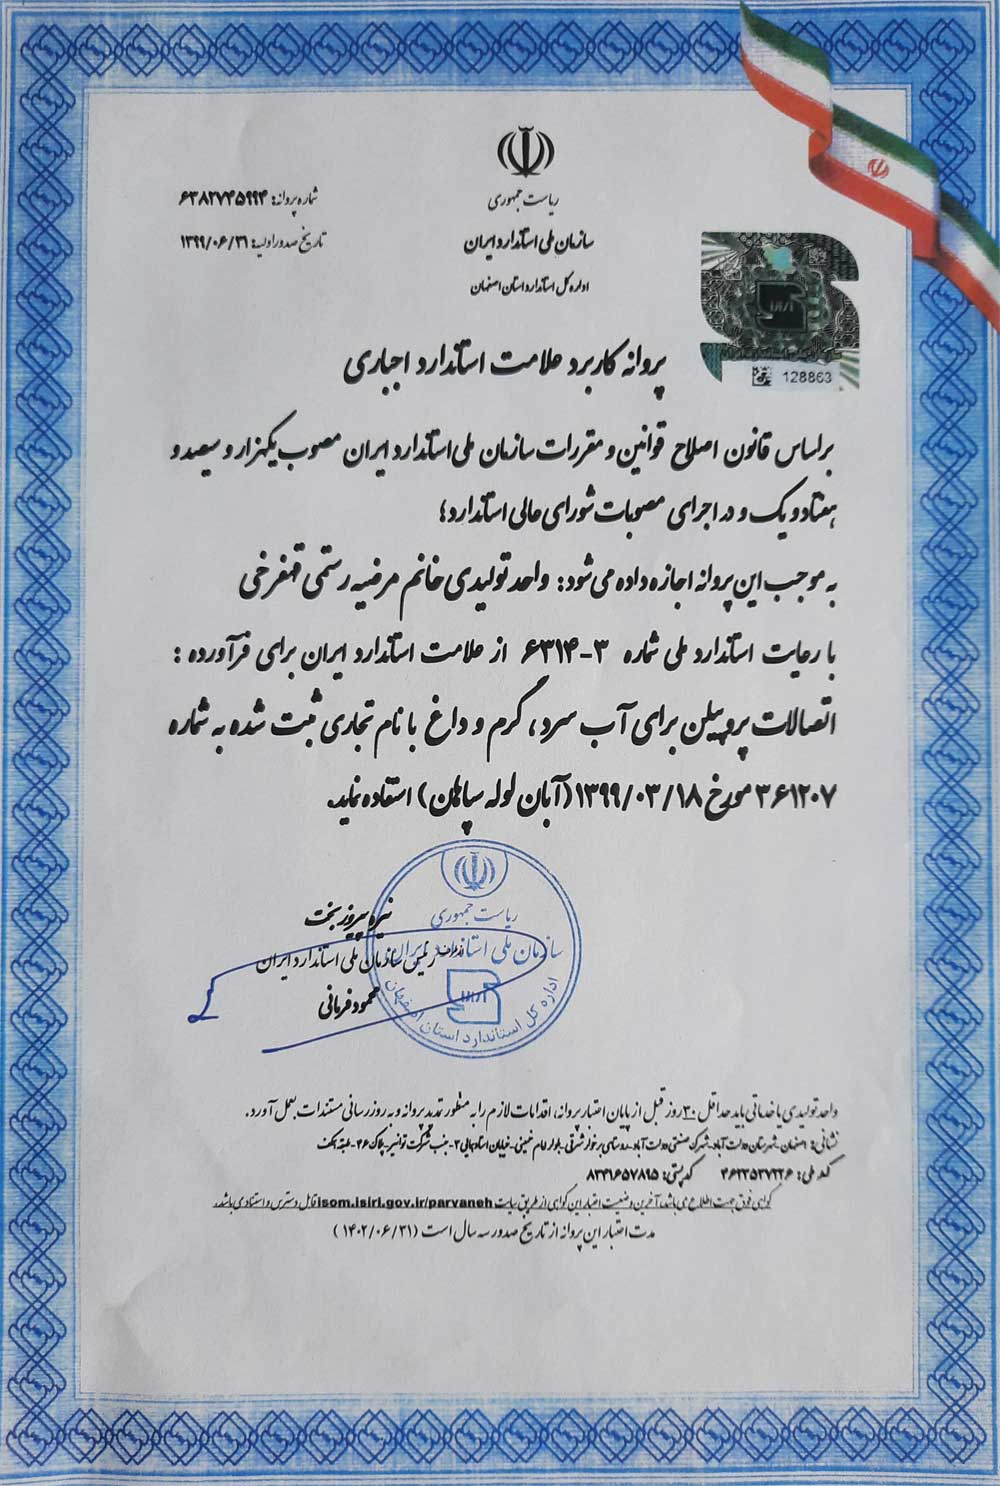 ریاست جمهوری
سازمان ملی استاندارد ایران
اداره کل استاندارد استان اصفهان
شماره پروانه: ۶۳۸۲۷۴۵۹۹۴
تاریخ صدور اولیه: ۱۳۹۹/۰۶/۳۱
128863
پروانه کاربرد علامت استاندارد اجباری
براساس قانون اصلاح قوانین و مقررات سازمان ملی استاندارد ایران مصوب یکهزار و سیصد و
هفتاد و یک و در اجرای مصوبات شورای عالی استاندارد؛
به موجب این پروانه اجازه داده می شود: واحد تولیدی خانم مرضیه رستمی قهفرخی
با رعایت استاندارد ملی شماره ۳-۶۳۱۴ از علامت استاندارد ایران برای فرآورده :
اتصالات پروپیلن برای آب سرد، گرم و داغ با نام تجاری ثبت شده به شماره
۳۶۱۲۰۷ مورخ ۱۳۹۹/۰۳/۱۸ (آبان لوله سپاهان) استفاده نماید.
ریاست جمهوری
سازمان ملی استاندارد ایران
اداره کل استاندارد استان اصفهان
نیره پیروزبخت
رئیس سازمان ملی استاندارد ایران
محمود فرمانی
واحد تولیدی یا خدماتی باید حداقل ۳۰ روز قبل از پایان اعتبار پروانه، اقدامات لازم را به منظور تمدید پروانه و به روز رسانی مستندات بعمل آورد.
نشانی: اصفهان-شهرستان دولت آباد-شهرک صنعتی دولت آباد- برخوار شرقی-بلوار امام خمینی-خیابان ۳- جنب شرکت پلاک ۴۶-طبقه همکف
کد ملی: ۴۶۲۳۵۳۷۲۲۶ کد پستی: ۸۳۴۱۶۵۷۸۹۵
گواهی فوق جهت اطلاع می باشد، آخرین وضعیت اعتبار این گواهی از طریق سایت isom.isiri.gov.ir/parvaneh قابل دسترس و استنادی باشد.
مدت اعتبار این پروانه از تاریخ صدور سه سال است (۱۴۰۲/۰۶/۳۱)